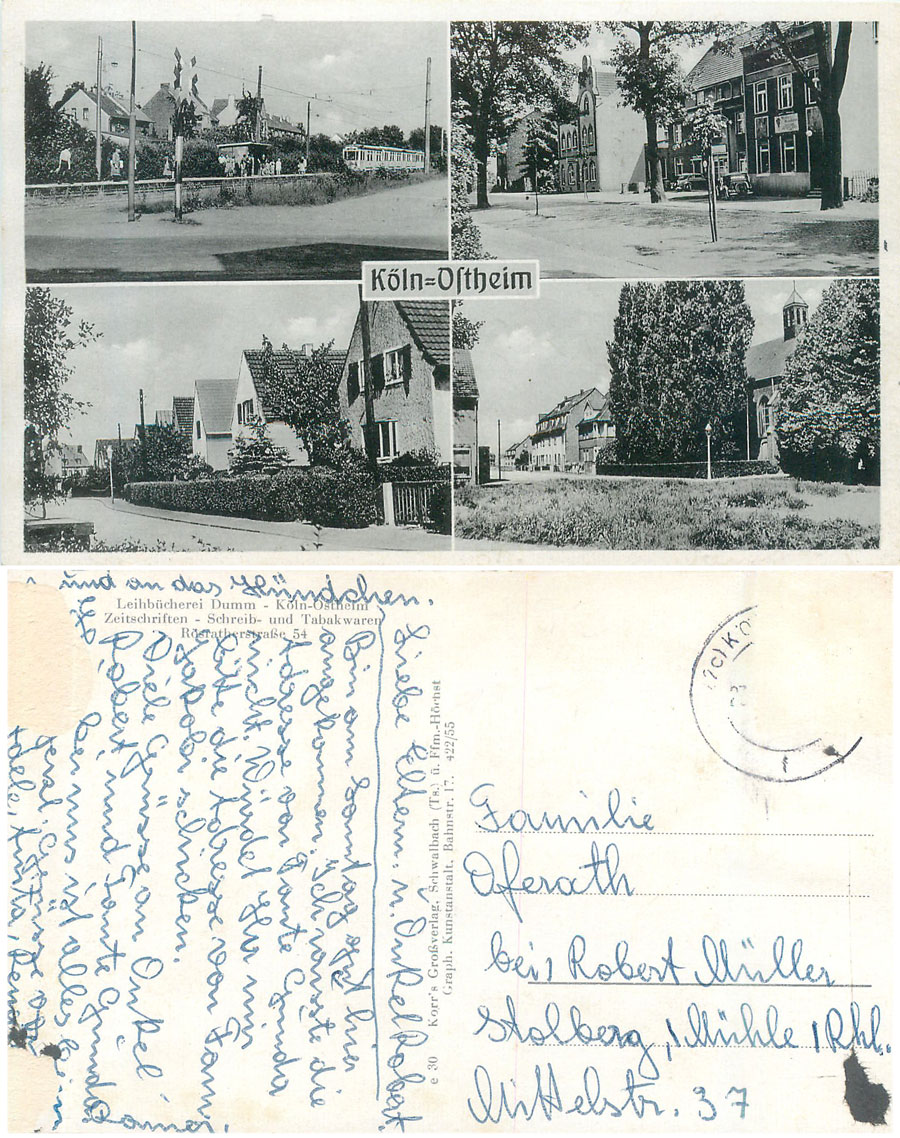 Köln=Ostheim
Leihbücherei Dumm - Köln-Ostheim
Zeitschriften - Schreib- und Tabakwaren
Rösratherstraße 54
und an das Hündchen.
Liebe Eltern u. Onkel Robert.
Bin am Sontag gut hier
angekommen. Ich wusste die
Adresse von Tante Gunda
nicht. Würdet Ihr mir
bitte die Adresse von Fami
Jakobi schicken.
Viele Grüsse an Onkel
Robert und Tante Gunda
bei uns ist alles beim
Grüsse
e 30 Korr's Großverlag, Schwalbach (Ts.) ü. Ffm.-Höchst
Graph. Kunstanstalt, Bahnstr. 17. 422/55
Familie
Oferath
bei Robert Müller
Stolberg, Mühle, Rhl.
Mittelstr. 37